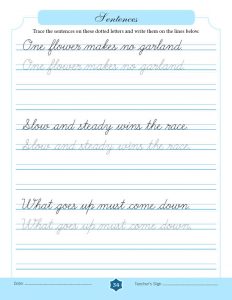 Sentences
Trace the sentences on these dotted letters and write them on the lines below.
One flower makes no garland.
One flower makes no garland.
Slow and steady wins the race.
Slow and steady wins the race.
What goes up must come down.
What goes up must come down.
Date: 34 Teacher's Sign